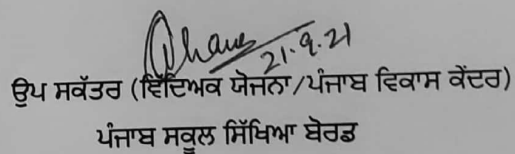 21.9.21
ਉਪ ਸਕੱਤਰ (ਵਿੱਦਿਅਕ ਯੋਜਨਾ/ਪੰਜਾਬ ਵਿਕਾਸ ਕੇਂਦਰ)
ਪੰਜਾਬ ਸਕੂਲ ਸਿੱਖਿਆ ਬੋਰਡ